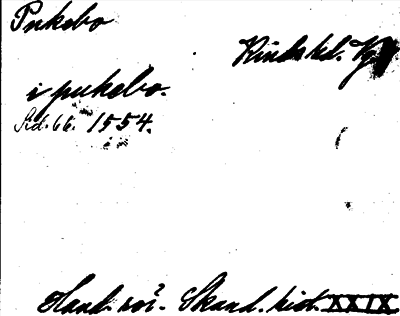 Pukebo
Kinds hd. Vg
i pukebo.
Sid. 66. 1554.
Hand. rör. Skand. hist. XXIX